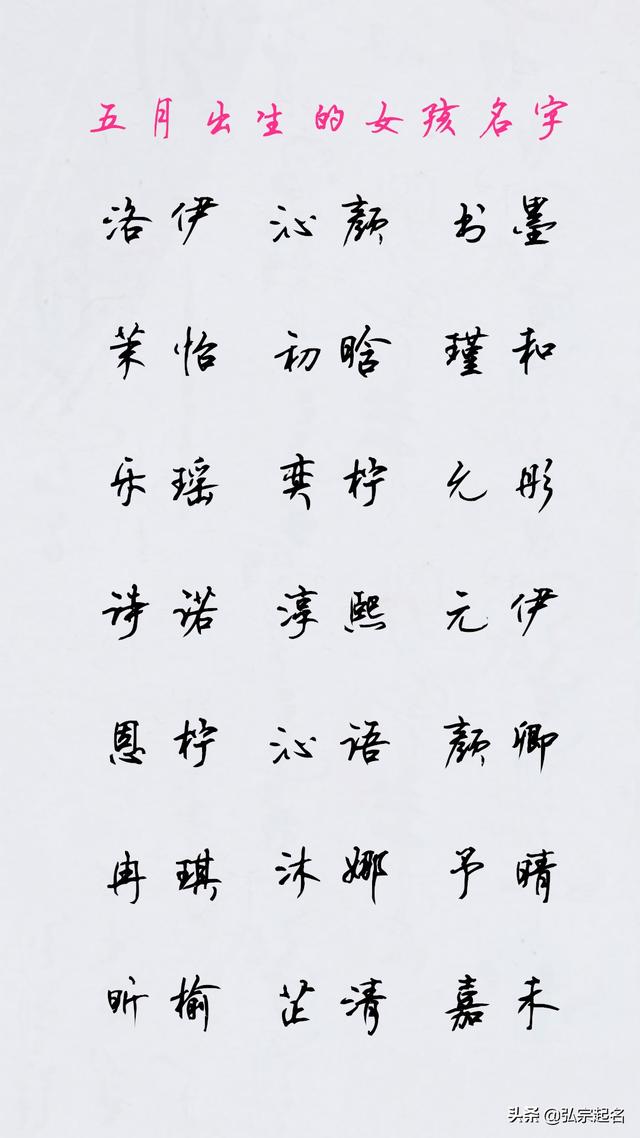 五月出生的女孩名字
洛伊 沁颜 书墨
茉怡 初晗 瑾和
乐瑶 奕柠 允彤
诗诺 淳熙 元伊
恩柠 沁语 颜卿
冉琪 沐娜 予晴
昕榆 芷清 嘉未
头条 @弘宗起名